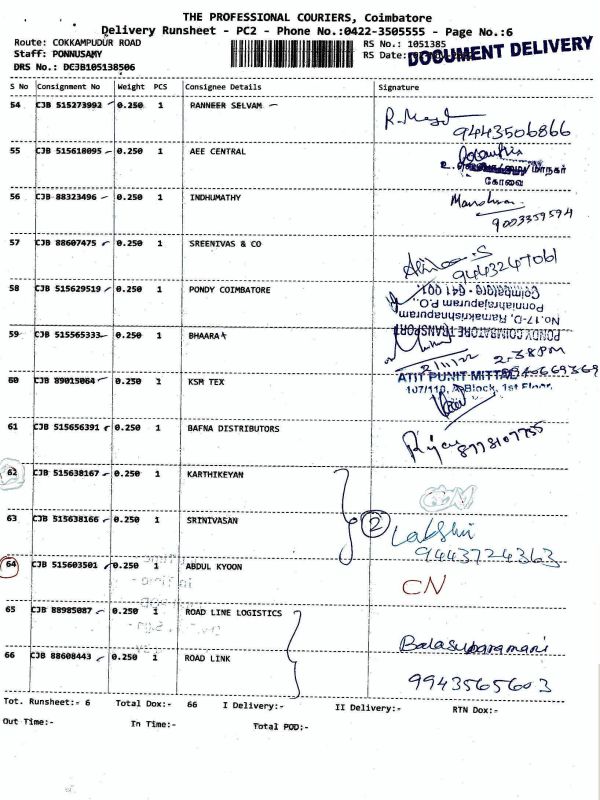 THE PROFESSIONAL COURIERS, Coimbatore
Delivery Runsheet - PC2 - Phone No.:0422-3505555 - Page No.:6
Route: COKKAMPUDUR ROAD
Staff: PONNUSAMY
DRS No.: DCJB105138506
RS No.: 1051385
RS Date:
DOCUMENT DELIVERY
S No Consignment No Weight PCS Consignee Details Signature
54 CJB 515273992 0.250 1 RANNEER SELVAM
9443506866
55 CJB 515618095 0.250 1 AEE CENTRAL
மாநகர்
கோவை
56 CJB 88323496 0.250 1 INDHUMATHY
9003359594
57 CJB 88607475 0.250 1 SREENIVAS & CO
9443247061
58 CJB 515629519 0.250 1 PONDY COIMBATORE
Coimbatore - 641 001
Ponniahrajapuram P.O.,
No.17-D, Ramakrishnapuram
PONDY COIMBATORE TRANSPORT
59 CJB 515565333 0.250 1 BHAARA
2/11/22 2.38PM
60 CJB 89015064 0.250 1 KSM TEX
ATIT PUNIT MITTAL
107/110, A Block, 1st Floor,
61 CJB 515656391 0.250 1 BAFNA DISTRIBUTORS
8778107755
62 CJB 515638167 0.250 1 KARTHIKEYAN
63 CJB 515638166 0.250 1 SRINIVASAN
2
Lakshmi
9443724363
64 CJB 515603501 0.250 1 ABDUL KYOON
CN
65 CJB 88985087 0.250 1 ROAD LINE LOGISTICS
66 CJB 88608443 0.250 1 ROAD LINK
Balasubaramani
9943565603
Tot. Runsheet:- 6 Total Dox:- 66 I Delivery:- II Delivery:- RTN Dox:-
Out Time:- In Time:- Total POD:-